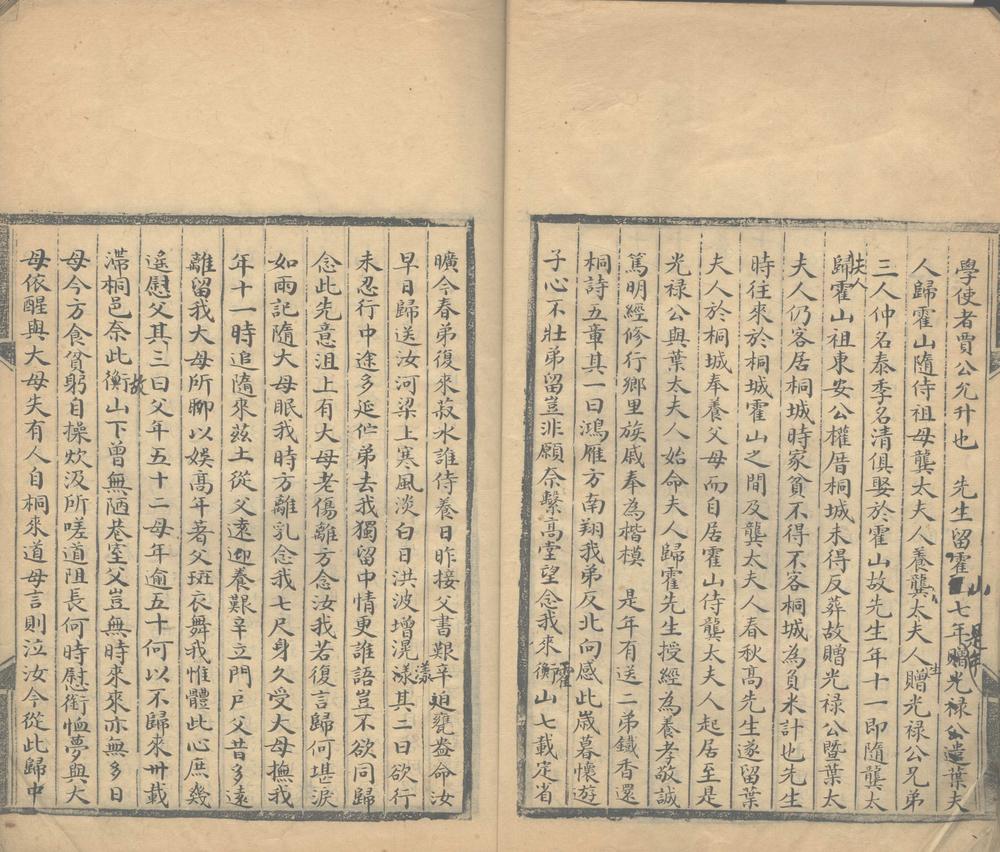 學使者賈公允升也　先生留霍山七年是年贈光祿公遣葉夫
人歸霍山隨侍祖母龔太夫人養龔太夫人生贈光祿公兄弟
三人仲名泰季名清俱娶於霍山故先生年十一即隨龔太
夫人歸霍山祖東安公權厝桐城未得反葬故贈光祿公暨葉太
夫人仍客居桐城時家貧不得不客桐城為負米計也先生
時往來於桐城霍山之間及龔太夫人春秋高先生遂留葉
夫人於桐城奉養父母而自居霍山侍龔太夫人起居至是
光祿公與葉太夫人始命夫人歸霍先生授經為養孝敬誠
篤明經修行鄉里族戚奉為楷模　是年有送二弟鐵香還
桐詩五章其一曰鴻雁方南翔我弟反北向感此歲暮懷遊
子心不壯弟留豈非願奈繫高堂望念我來霍衡山七載定省
曠今春弟復來菽水誰侍養日昨接父書艱辛迫甕盎命汝
早日歸送汝河梁上寒風淡白日洪波增滉漾其二曰欲行
未忍行中途多延佇弟去我獨留中情更誰語豈不欲同歸
念此先意沮上有大母老傷離方念汝我若復言歸何堪淚
如雨記隨大母眠我時方離乳念我七尺身久受大母撫我
年十一時追隨來茲土從父遠迎養艱辛立門戶父昔多遠
離留我大母所聊以娛高年著父斑衣舞我惟體此心庶幾
遙慰父其三曰父年五十二母年逾五十何以不歸來卅載
滯桐邑奈此衡故山下曾無陋巷室父豈無時來來亦無多日
母今方食貧躬自操炊汲所嗟道阻長何時慰銜恤夢與大
母依醒與大母失有人自桐來道母言則泣汝今從此歸中